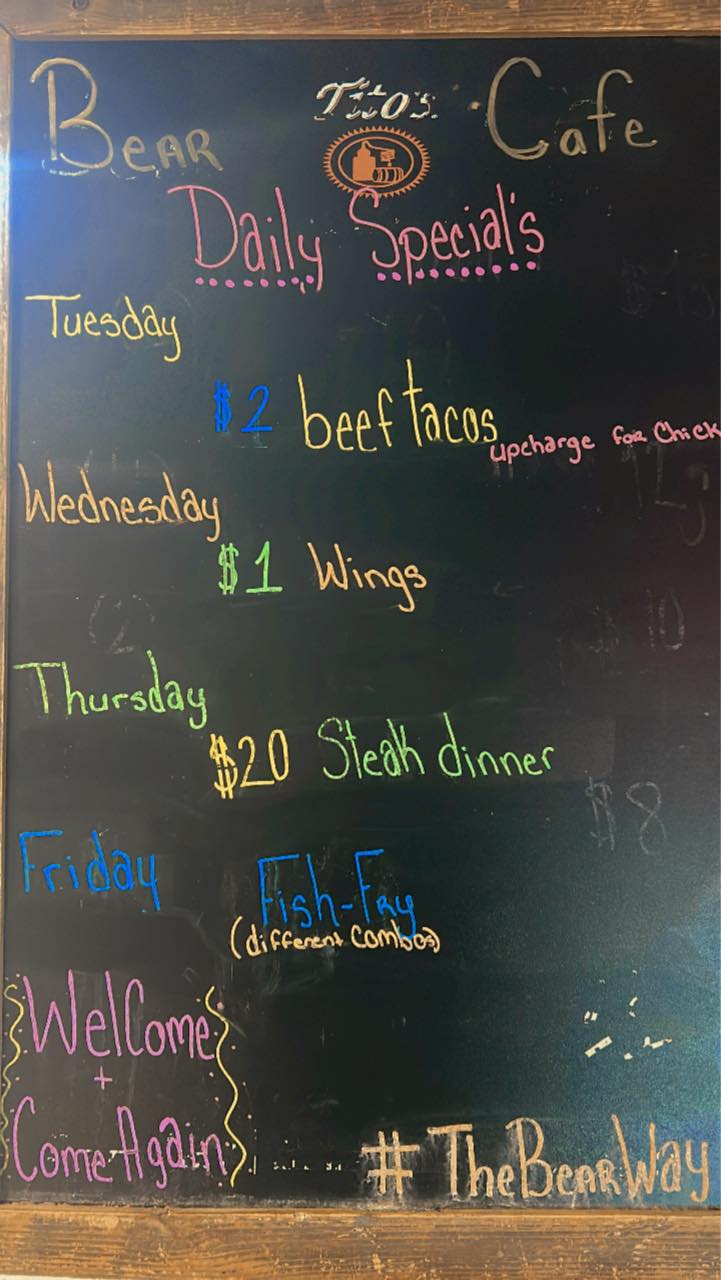 Bear Tito's Cafe
Daily Special's
Tuesday
$2 beef tacos
upcharge for Chick
Wednesday
$1 Wings
Thursday
$20 Steak dinner
Friday Fish-Fry
(different combos)
Welcome
+
Come Again
#TheBearWay
$8
$10